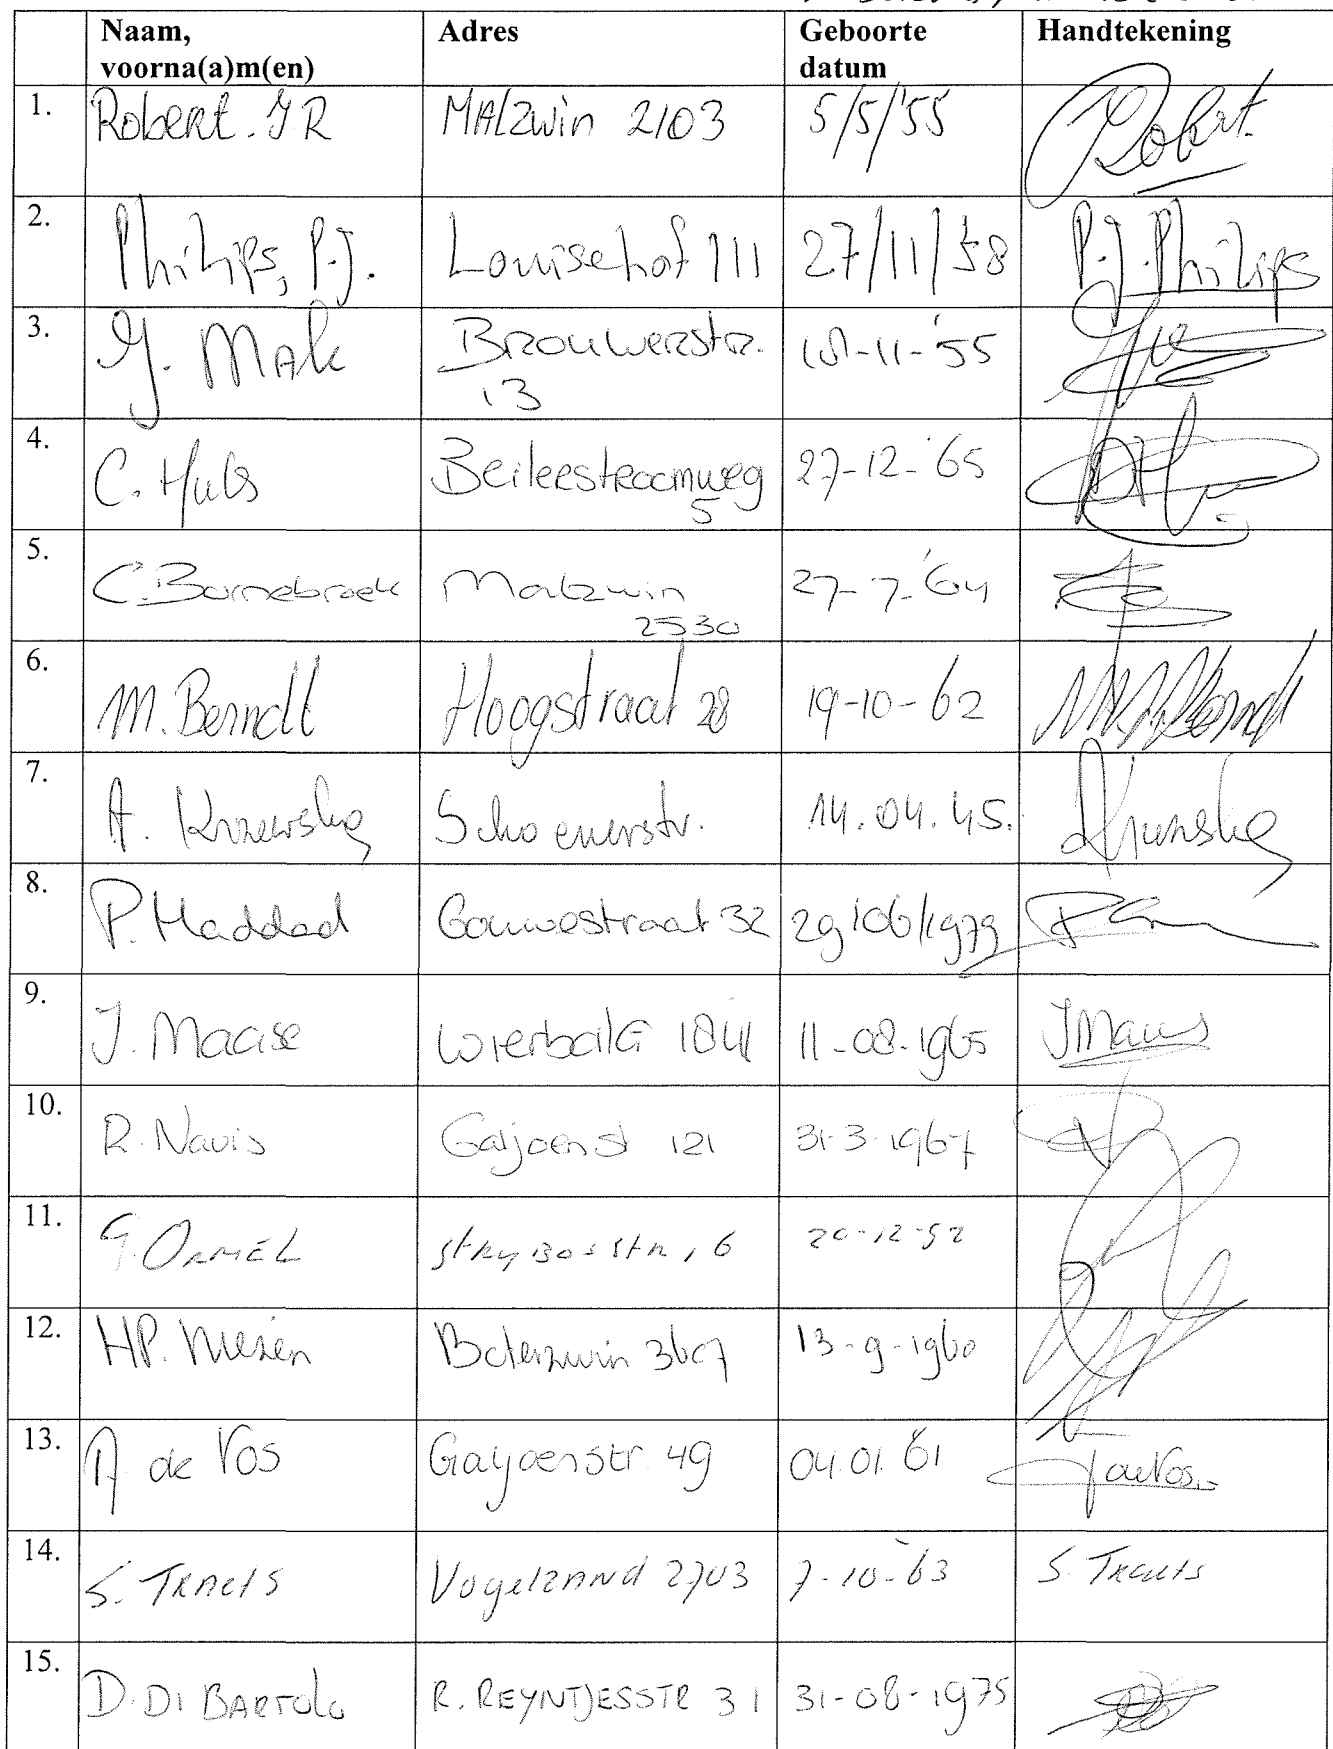 Naam, Adres Geboorte Handtekening
voorna(a)m(en) datum
1. Robert. JR MAlzwin 2103 5/5/'55 Robert.
2. Philips, P.J. Louisehof 111 27/11/'58 P.J. Philips
3. J. Mak Brouwerstr. 18-11-'55
13
4. C. Huls Beilerstroomweg 27-12-'65
5
5. C. Bornebroek Malzwin 27-7-'64
2530
6. M. Berndt Hoogstraat 28 19-10-62
7. A. Schoenerstr. 14.04.45.
8. P. Haddad Gouwestraat 32 29/06/1979
9. J. Maase Wierbalg 1841 11-08-1965
10. R. Navis Galjoenst 121 31-3-1967
11. G. ORMEL 6 20-12-52
12. HP. Boterzwin 3607 13-9-1960
13. A de Vos Galjoenstr. 49 04.01.'61
14. S. Vogelzand 2703 7-10-'63
15. D. DI BARTOLO R. REYNTJESSTR 31 31-08-1975